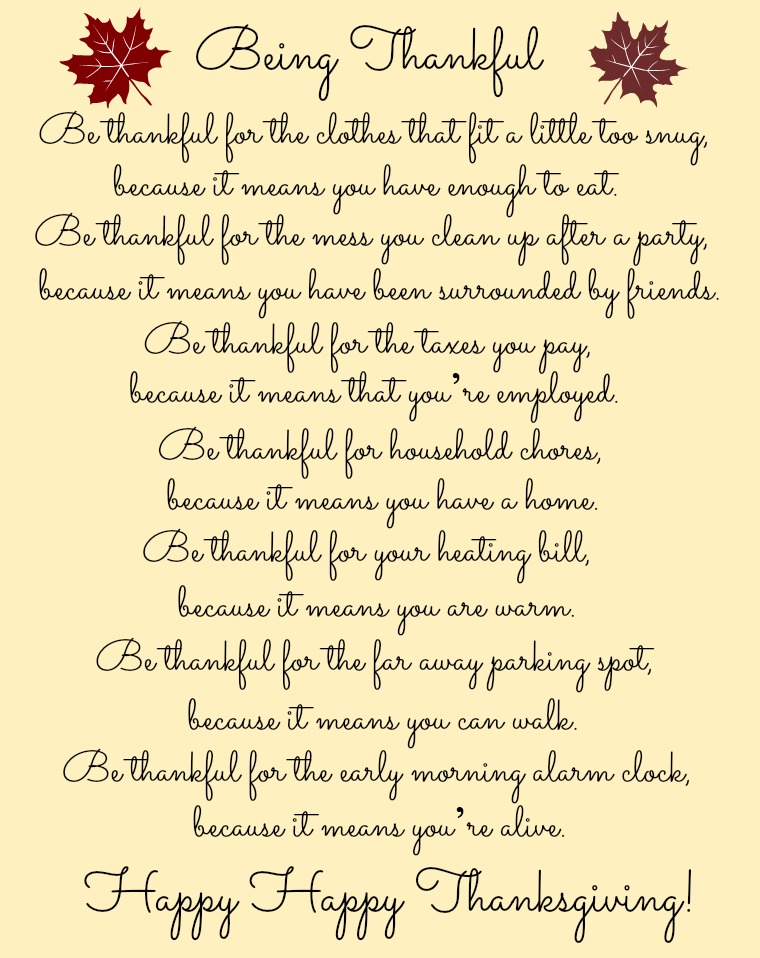 Being Thankful
Be thankful for the clothes that fit a little too snug,
because it means you have enough to eat.
Be thankful for the mess you clean up after a party,
because it means you have been surrounded by friends.
Be thankful for the taxes you pay,
because it means that you’re employed.
Be thankful for household chores,
because it means you have a home.
Be thankful for your heating bill,
because it means you are warm.
Be thankful for the far away parking spot,
because it means you can walk.
Be thankful for the early morning alarm clock,
because it means you’re alive.
Happy Happy Thanksgiving!